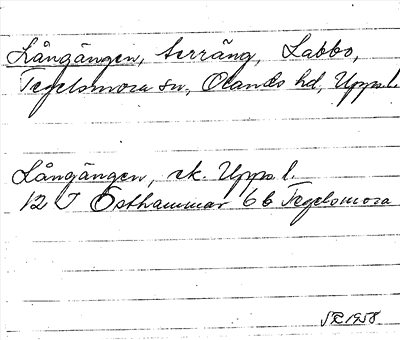 Långängen, terräng, Labbo,
Tegelsmora sn, Olands hd, Upps.l.
Långängen, ek. Upps l.
12 I Östhammar 6 b Tegelsmora
1958